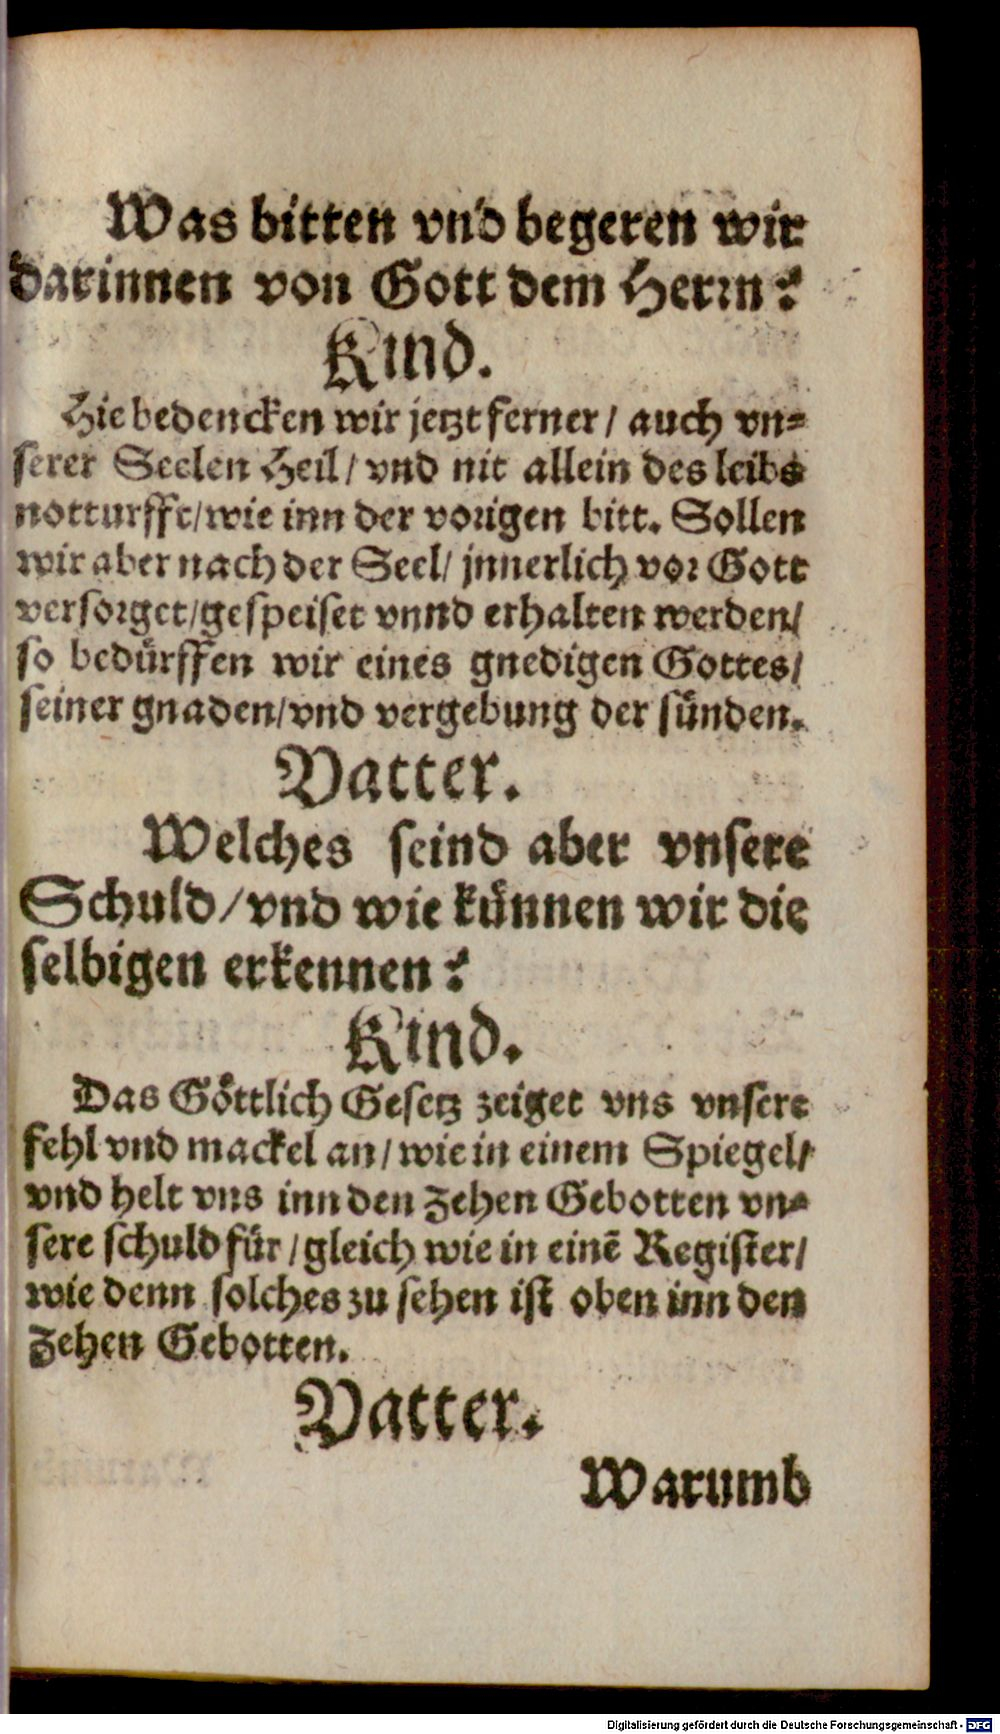 Was bitten vnd begeren wir
darinnen von Gott dem Herrn?
Kind.
Hie bedencken wir jetzt ferner / auch vn-
serer Seelen Heil / vnd nit allein des leibs
notturfft / wie inn der vorigen bitt. Sollen
wir aber nach der Seel / jnnerlich vor Gott
versorget / gespeiset vnnd erhalten werden /
so bedürffen wir eines gnedigen Gottes /
seiner gnaden / vnd vergebung der sünden.
Vatter.
Welches seind aber vnsere
Schuld / vnd wie künnen wir die
selbigen erkennen?
Kind.
Das Göttlich Gesetz zeiget vns vnsere
fehl vnd mackel an / wie in einem Spiegel /
vnd helt vns inn den Zehen Gebotten vn-
sere schuld für / gleich wie in einē Register /
wie denn solches zu sehen ist oben inn den
Zehen Gebotten.
Vatter.
Warumb
Digitalisierung gefördert durch die Deutsche Forschungsgemeinschaft - DFG